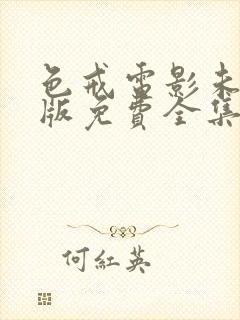 色戒雷影未
版免費全集
何紅英